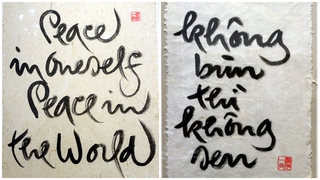 Peace
in oneself
Peace in
the World
không
bùn
thì
không
sen